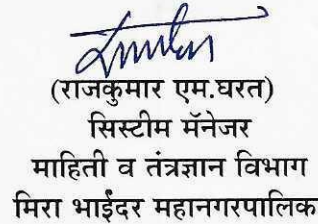 (राजकुमार एम.घरत)
सिस्टीम मॅनेजर
माहिती व तंत्रज्ञान विभाग
मिरा भाईंदर महानगरपालिक